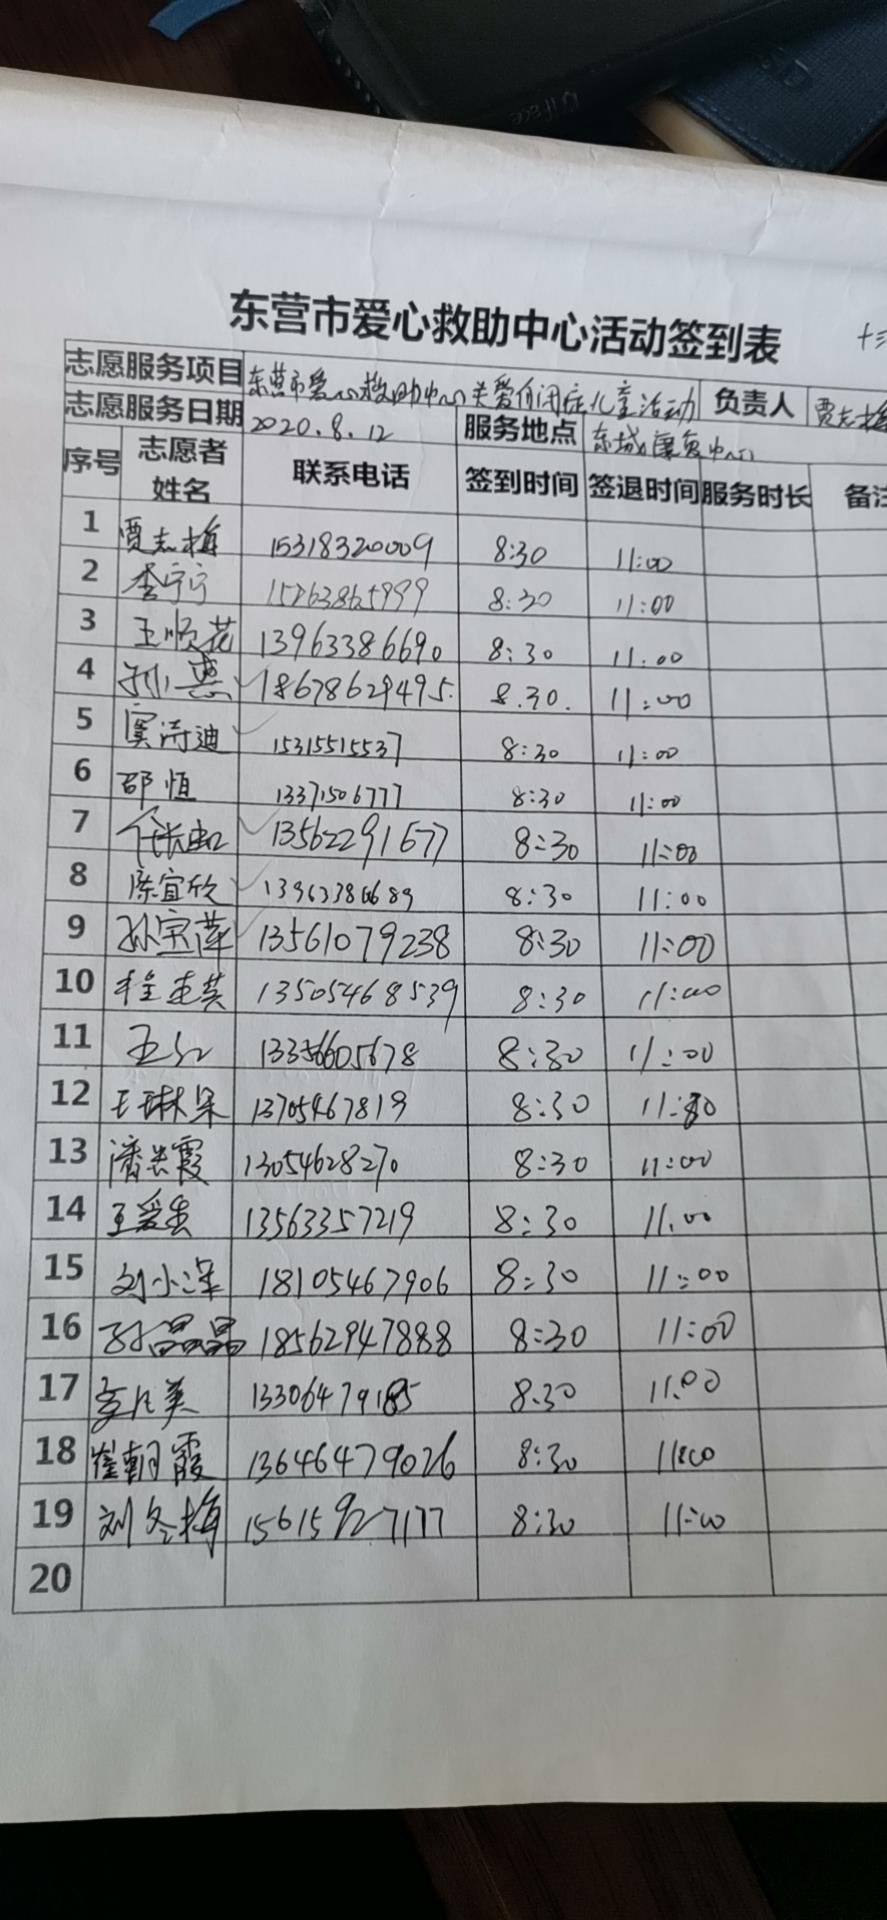 东营市爱心救助中心活动签到表
十三
志愿服务项目 东营市爱心救助中心关爱自闭症儿童活动 负责人 贾志梅
志愿服务日期 2020.8.12 服务地点 东城康复中心
序号 志愿者姓名 联系电话 签到时间 签退时间 服务时长 备注
1 贾志梅 15318320009 8:30 11:00
2 李宁宁 15263865999 8:30 11:00
3 王顺花 13963386690 8:30 11:00
4 孙惠 18678629495 8.30. 11:00
5 15315515537 8:30 11:00
6 邵恒 13371506777 8:30 11:00
7 13562291677 8:30 11:00
8 陈宜欣 13963386689 8:30 11:00
9 孙宝萍 13561079238 8:30 11:00
10 程建英 13505468539 8:30 11:00
11 王红 13356605678 8:30 11:00
12 王琳杲 13705467819 8:30 11:30
13 潘美霞 13054628270 8:30 11:00
14 王爱贵 13563357219 8:30 11.00
15 刘小深 18105467906 8:30 11:00
16 孙晶晶 18562947888 8:30 11:00
17 13306479185 8.30 11.00
18 崔朝霞 13646479026 8:30 11:00
19 刘冬梅 15615927177 8:30 11:00
20